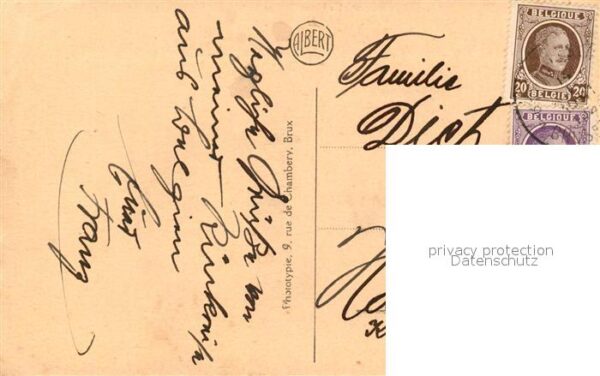 Herzliche Grüße von
meiner Rückreise
aus Belgien
Euer
Franz
ALBERT
Phototypie, 9, rue de Chambery, Brux
Familie
BELGIQUE
20 20
BELGIË
BELGIQUE
privacy protection
Datenschutz